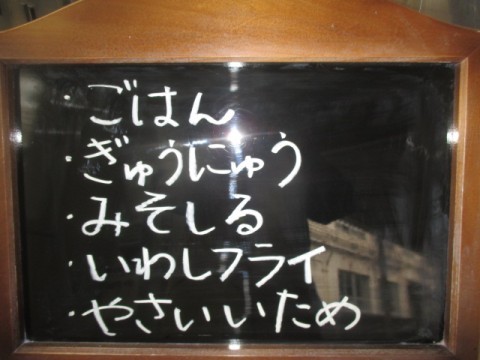 ・ごはん
・ぎゅうにゅう
・みそしる
・いわしフライ
・やさいいため